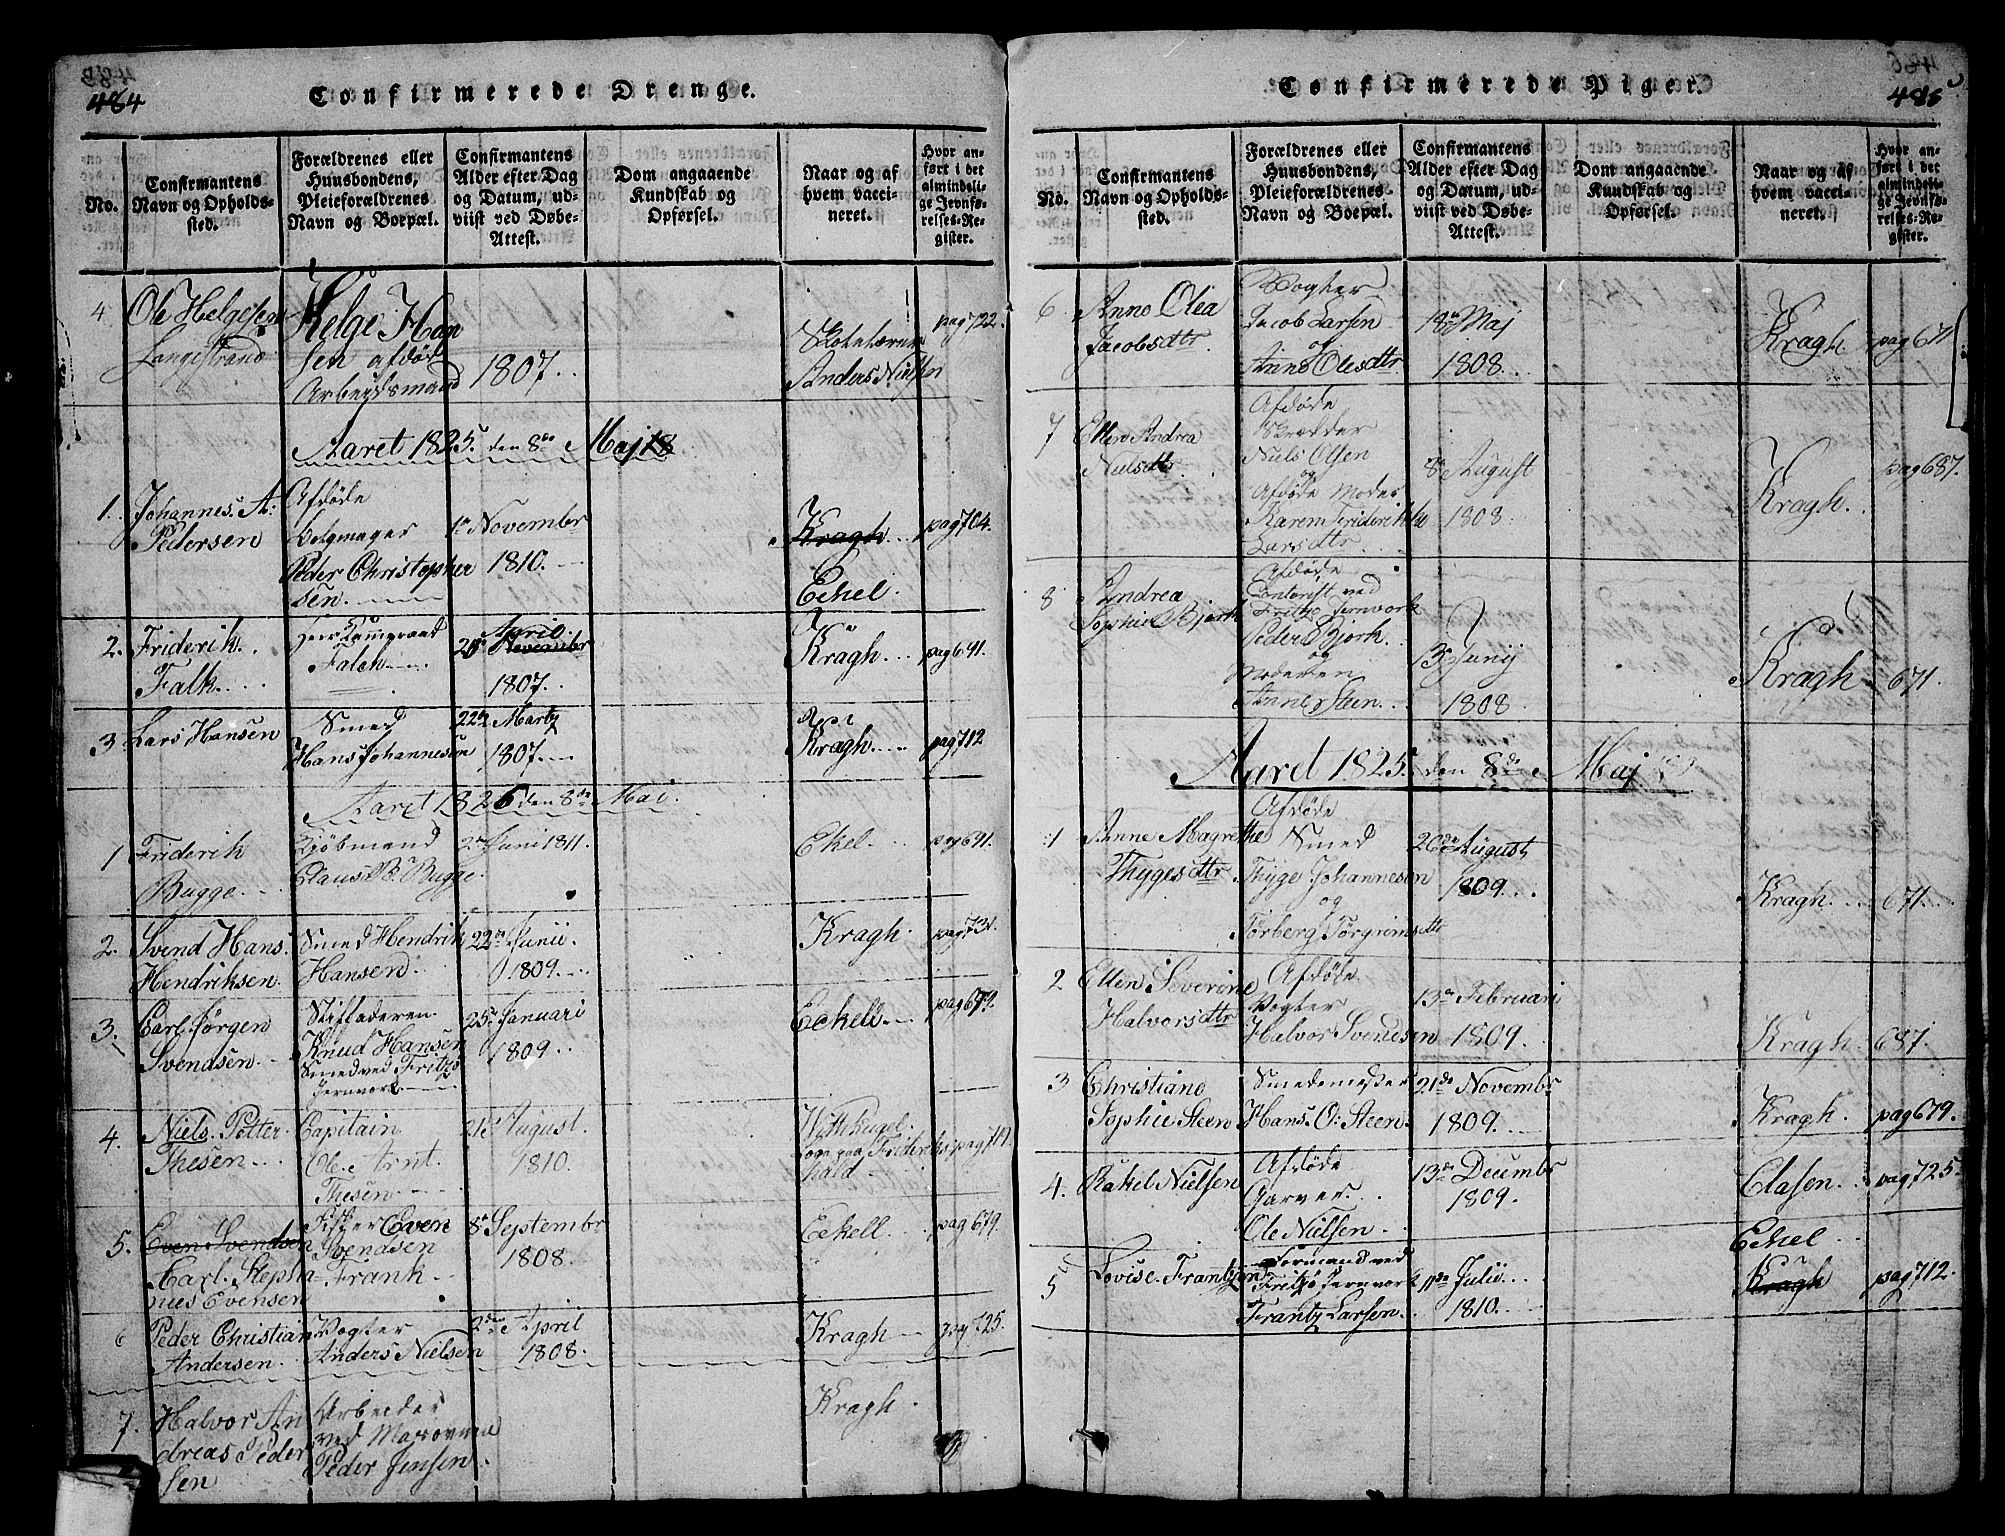 464
Confirmerede Drenge.
No.
Confirmantens
Navn og Opholds-
sted.
Forældrenes eller
Huusbondens,
Pleieforældrenes
Navn og Boepæl.
Confirmantens
Alder efter Dag
og Datum, ud-
viist ved Døbe-
Attest.
Dom angaaende
Kundskab og
Opførsel.
Naar og af
hvem vacci-
neret.
Hvor an-
ført i det
almindeli-
ge Jevnfø-
relses-Re-
gister.
4
Ole Helgesen
Langestrand
Helge Han
sen afdød
Arbeidsmand
1807.
Anders Nielsen
pag 722.
Aaret 1825 den 8de Maj
1.
Johannes. A:
Pedersen
Afdøde
Peder Christopher
sen.
1te Novembr
1810.
Kragh
Eckel.
pag 704.
2.
Friderik
Falk
Herr Kamerraad
Falck
April
Novembr
1807.
Kragh
pag 691.
3
Lars Hansen
Smed
Hans Johannesen
22de Marty
1807.
Kragh
pag 712
Aaret 1826 den 8de Mai.
1
Friderik
Bugge
Kjøbmand
Claus B. Bugge
2den Juni 1811.
Ekel.
pag 691.
2.
Svend Hans
Hendriksen.
Smed Hendrik
Hansen
22de Junii
1809.
Kragh.
pag 731.
3.
Carl Jørgen
Svendsen
Knud Hansen
Smed ved Fritzø
Jernværk
25de Januari
1809.
Eckell
pag 679.
4.
Niels Petter
Thesen
Capitain
Ole Arnt
Thesen
21de August.
1810.
Frideriks
hald
pag 719.
5.
Even Svendsen
Carl Stepha-
nus Evensen
Fisker Even
Svendsen
Frank
8de Septembr
1808.
Eckell.
pag 679.
6
Peder Christian
Andersen.
Vogter
Anders Nielsen
2den April
1808.
Kragh
pag 725.
7.
Halvor An
dreas Peder
sen
Arbeider
ved
Peder Jensen.
Kragh.
Confirmerede Piger.
485
No.
Confirmantens
Navn og Opholds-
sted.
Forældrenes eller
Huusbondens,
Pleieforældrenes
Navn og Boepæl.
Confirmantens
Alder efter Dag
og Datum, ud-
viist ved Døbe-
Attest.
Dom angaaende
Kundskab og
Opførsel.
Naar og af
hvem vacci-
neret.
Hvor an-
ført i det
almindeli-
ge Jevnfø-
relses-Re-
gister.
6
Anne Olea
Jacobsdtr
Vogter
Jacob Larsen
og
Anne Olesdtr
18de Maj
1808.
Kragh
pag 671
7
Ellen Andrea
Nielsdtr
Afdøde
Skrædder
Niels Olsen
og
Afdøde Moder
Karen Friderikke
Larsdtr
8de August
1808.
Kragh.
pag 687.
8
Andrea
Sophie Bjork
Afdøde
Contorist ved
Fritzø Jernværk
Peder Bjork
og
Moderen
Anne Steen.
13de Junij
1808.
Kragh
671.
Aaret 1825 den 8de Maj
1
Anne Magrethe
Thygesdtr
Afdøde
Smed
Thyge Johannesen
og
Torberg Torgrimsdtr
20de August
1809.
Kragh.
671.
2
Ellen Severine
Halvorsdtr
Afdøde
Vogter
Halvor Svendsen
13de Februari
1809.
Kragh.
687.
3
Christiane
Sophie Steen
Smedemester
Hans O: Steen
21de Novembr
1809.
Kragh.
pag 679.
4.
Rakel Nielsen
Afdøde
Garver
Ole Nielsen.
13de Decembr
1809.
Clasen.
pag 725
5
Lovise Frantzen
Formand ved
Fritzø Jernværk
Frantz Larsen.
11te Julii
1810.
Eckel
Kragh
pag 712.